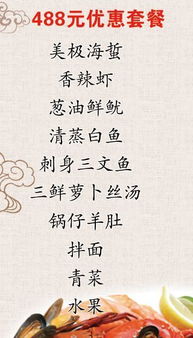 488元优惠套餐
美极海蜇
香辣虾
葱油鲜鱿
清蒸白鱼
刺身三文鱼
三鲜萝卜丝汤
锅仔羊肚
拌面
青菜
水果